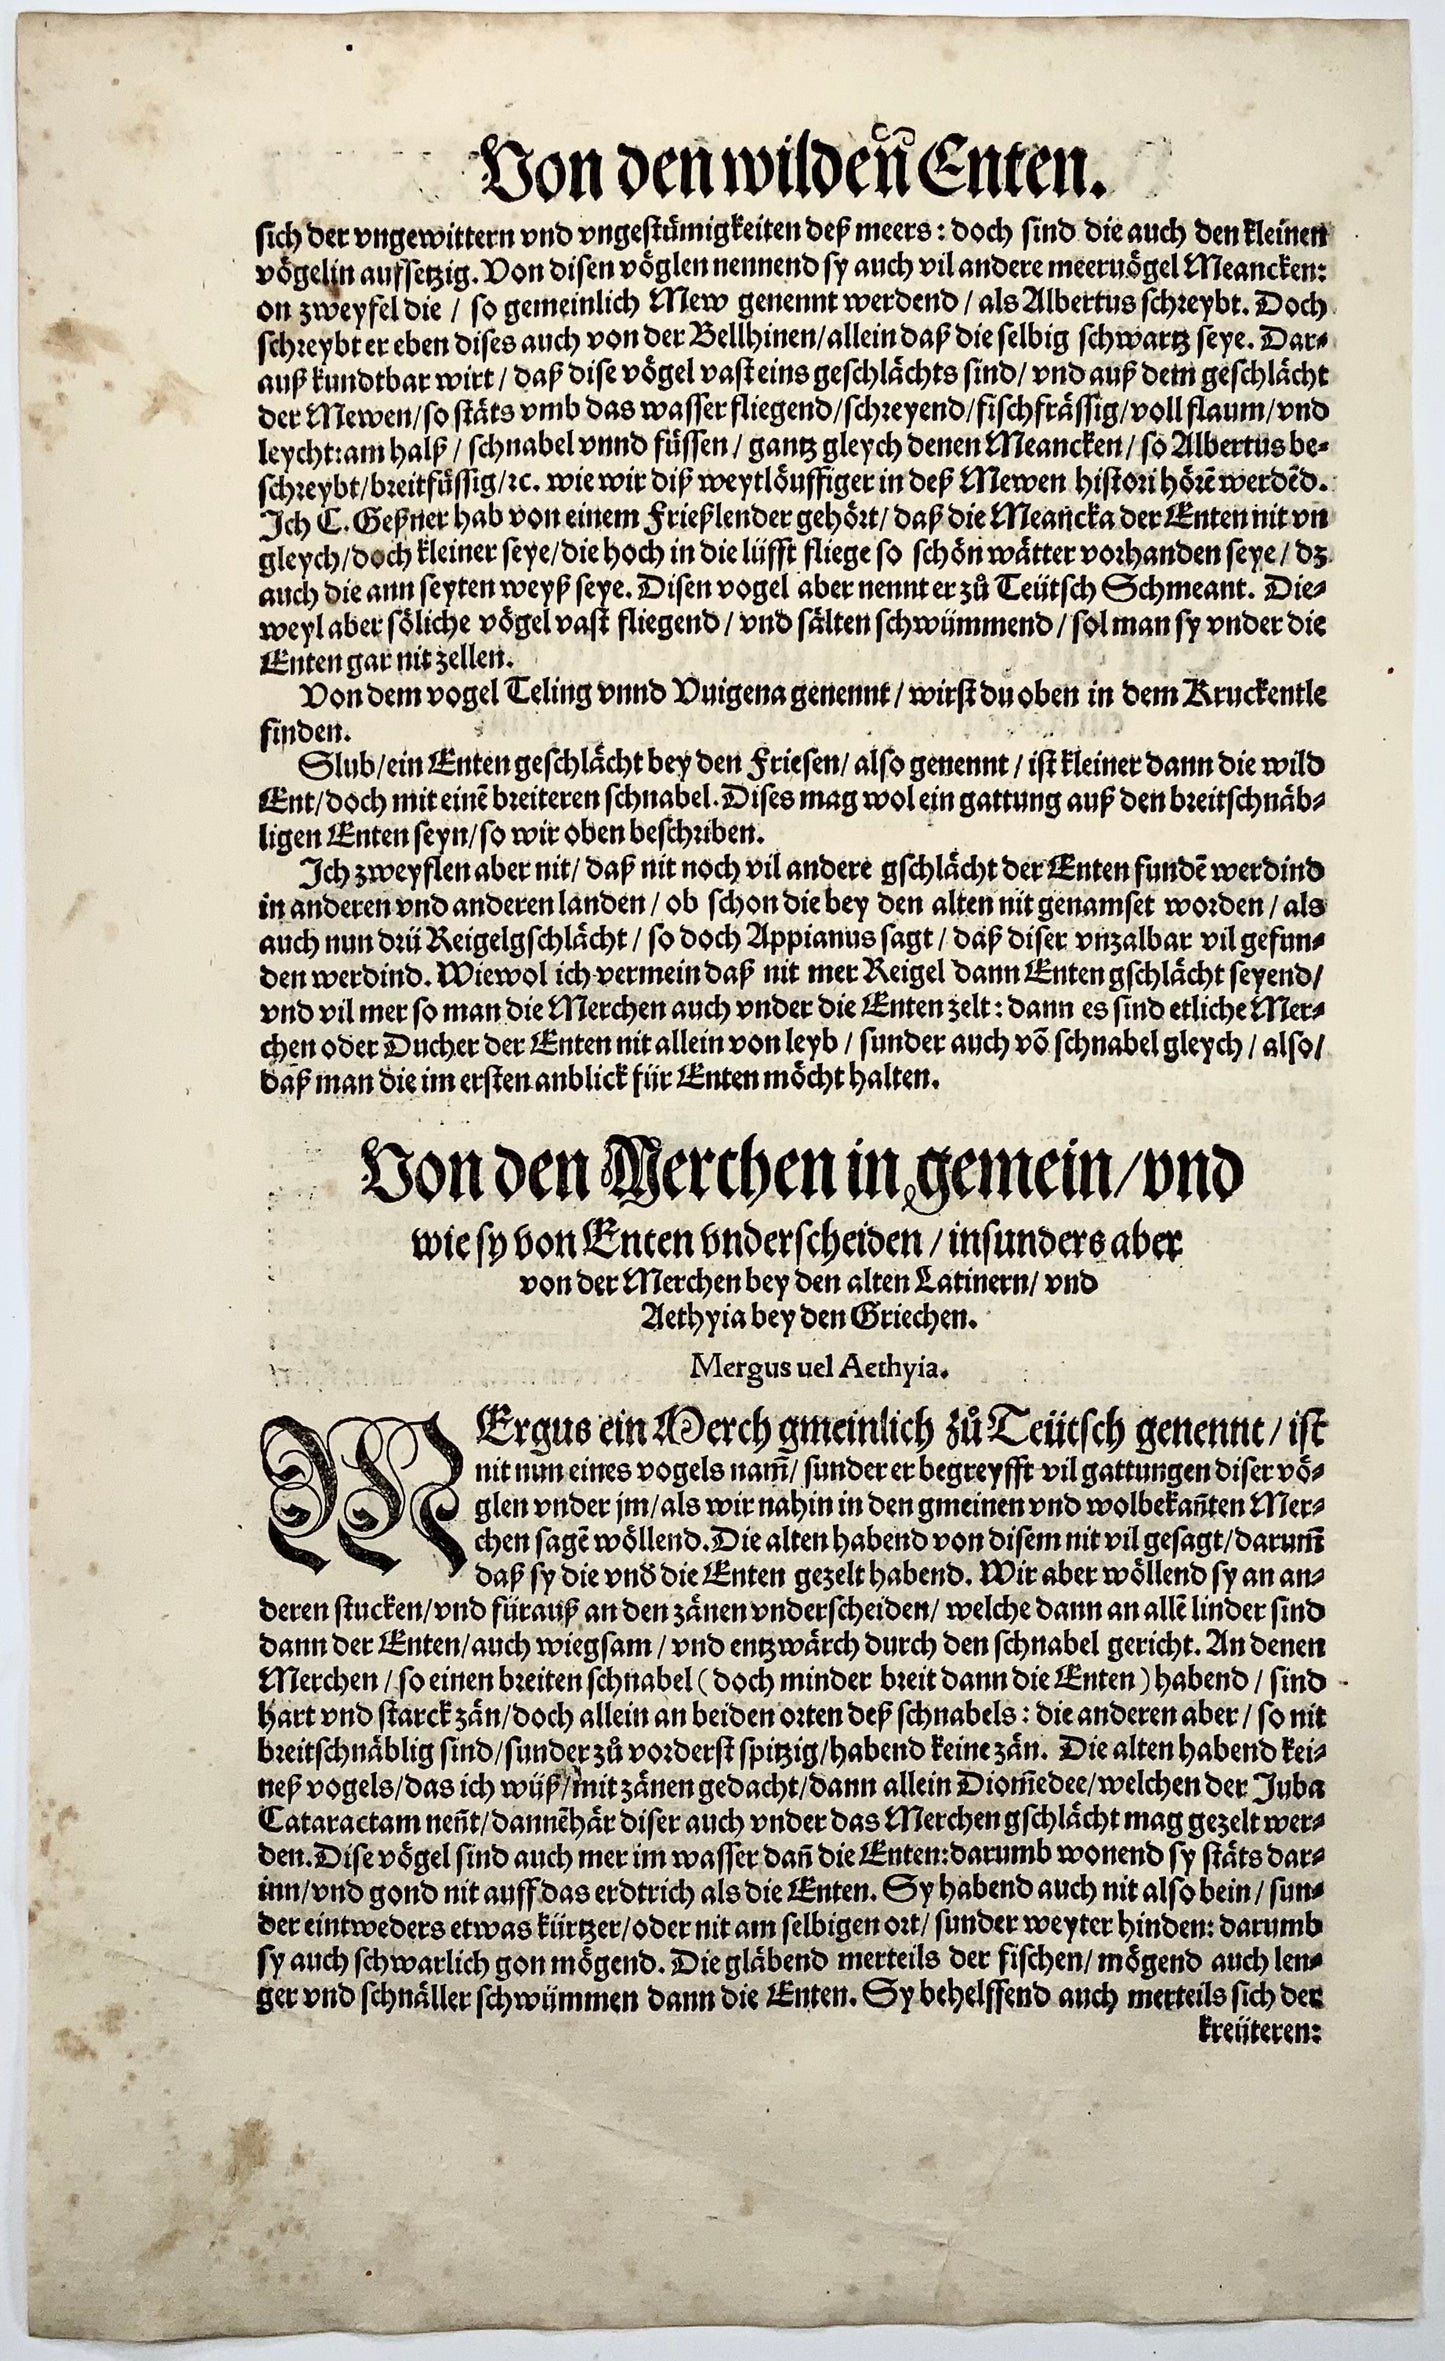 Von den wilden Enten.
sich der vngewittern vnd vngestümigkeiten deß meers: doch sind die auch den kleinen
vögelin aufsetzig. Von disen vöglen nennend sy auch vil andere meeruögel Meancken:
on zweyfel die / so gemeinlich Mew genennt werdend / als Albertus schreybt. Doch
schreybt er eben dises auch von der Bellhinen/allein daß die selbig schwartz seye. Dar-
auß kundtbar wirt / daß dise vögel vast eins geschlächts sind/ vnd auß dem geschlächt
der Mewen/so stäts vmb das wasser fliegend/schreyend/fischfrässig/voll flaum/vnd
leycht:am halß / schnabel vnnd füssen / gantz gleych denen Meancken / so Albertus be-
schreybt/breitfüssig/ꝛc. wie wir diß weytlöuffiger in deß Mewen histori hörē werdēd.
Ich C. Geßner hab von einem Frießlender gehört/ daß die Meancka der Enten nit vn
gleych/doch kleiner seye/die hoch in die lüfft fliege so schön wätter vorhanden seye / dz
auch die ann seyten weyß seye. Disen vogel aber nennt er zů Teütsch Schmeant. Die-
weyl aber söliche vögel vast fliegend / vnd sälten schwümmend / sol man sy vnder die
Enten gar nit zellen.
Von dem vogel Teling vnnd Vuigena genennt / wirst du oben in dem Kruckentle
finden.
Slub/ein Enten geschlächt bey den Friesen/ also genennt / ist kleiner dann die wild
Ent/doch mit einē breiteren schnabel. Dises mag wol ein gattung auß den breitschnäb-
ligen Enten seyn/so wir oben beschriben.
Ich zweyflen aber nit/ daß nit noch vil andere gschlächt der Enten fundē werdind
in anderen vnd anderen landen / ob schon die bey den alten nit genamset worden / als
auch nun drü Reigelgschlächt / so doch Appianus sagt / daß diser vnzalbar vil gefun-
den werdind. Wiewol ich vermein daß nit mer Reigel dann Enten gschlächt seyend/
vnd vil mer so man die Merchen auch vnder die Enten zelt: dann es sind etliche Mer-
chen oder Ducher der Enten nit allein von leyb / sunder auch vō schnabel gleych / also/
daß man die im ersten anblick für Enten möcht halten.
Von den Merchen in gemein/vnd
wie sy von Enten vnderscheiden / insunders aber
von der Merchen bey den alten Latinern/ vnd
Aethyia bey den Griechen.
Mergus uel Aethyia.
MErgus ein Merch gmeinlich zů Teütsch genennt / ist
nit nun eines vogels nam̄/ sunder er begreyfft vil gattungen diser vö-
glen vnder jm/als wir nahin in den gmeinen vnd wolbekañten Mer-
chen sagē wöllend. Die alten habend von disem nit vil gesagt/darum̄
daß sy die vnd die Enten gezelt habend. Wir aber wöllend sy an an-
deren stucken/vnd fürauß an den zänen vnderscheiden/ welche dann an allē linder sind
dann der Enten/auch wiegsam / vnd entzwärch durch den schnabel gericht. An denen
Merchen / so einen breiten schnabel (doch minder breit dann die Enten) habend / sind
hart vnd starck zän/doch allein an beiden orten deß schnabels: die anderen aber / so nit
breitschnäblig sind/sunder zů vorderst spitzig/habend keine zän. Die alten habend kei-
neß vogels/das ich wüß/mit zänen gedacht/dann allein Diom̄edee/welchen der Juba
Cataractam neñt/dannēhär diser auch vnder das Merchen gschlächt mag gezelt wer-
den. Dise vögel sind auch mer im wasser dañ die Enten:darumb wonend sy stäts dar-
inn/vnd gond nit auff das erdtrich als die Enten. Sy habend auch nit also bein / sun-
der eintweders etwas kürtzer/oder nit am selbigen ort/ sunder weyter hinden: darumb
sy auch schwarlich gon mögend. Die gläbend merteils der fischen/ mögend auch len-
ger vnd schnäller schwümmen dann die Enten. Sy behelffend auch merteils sich der
kreüteren: